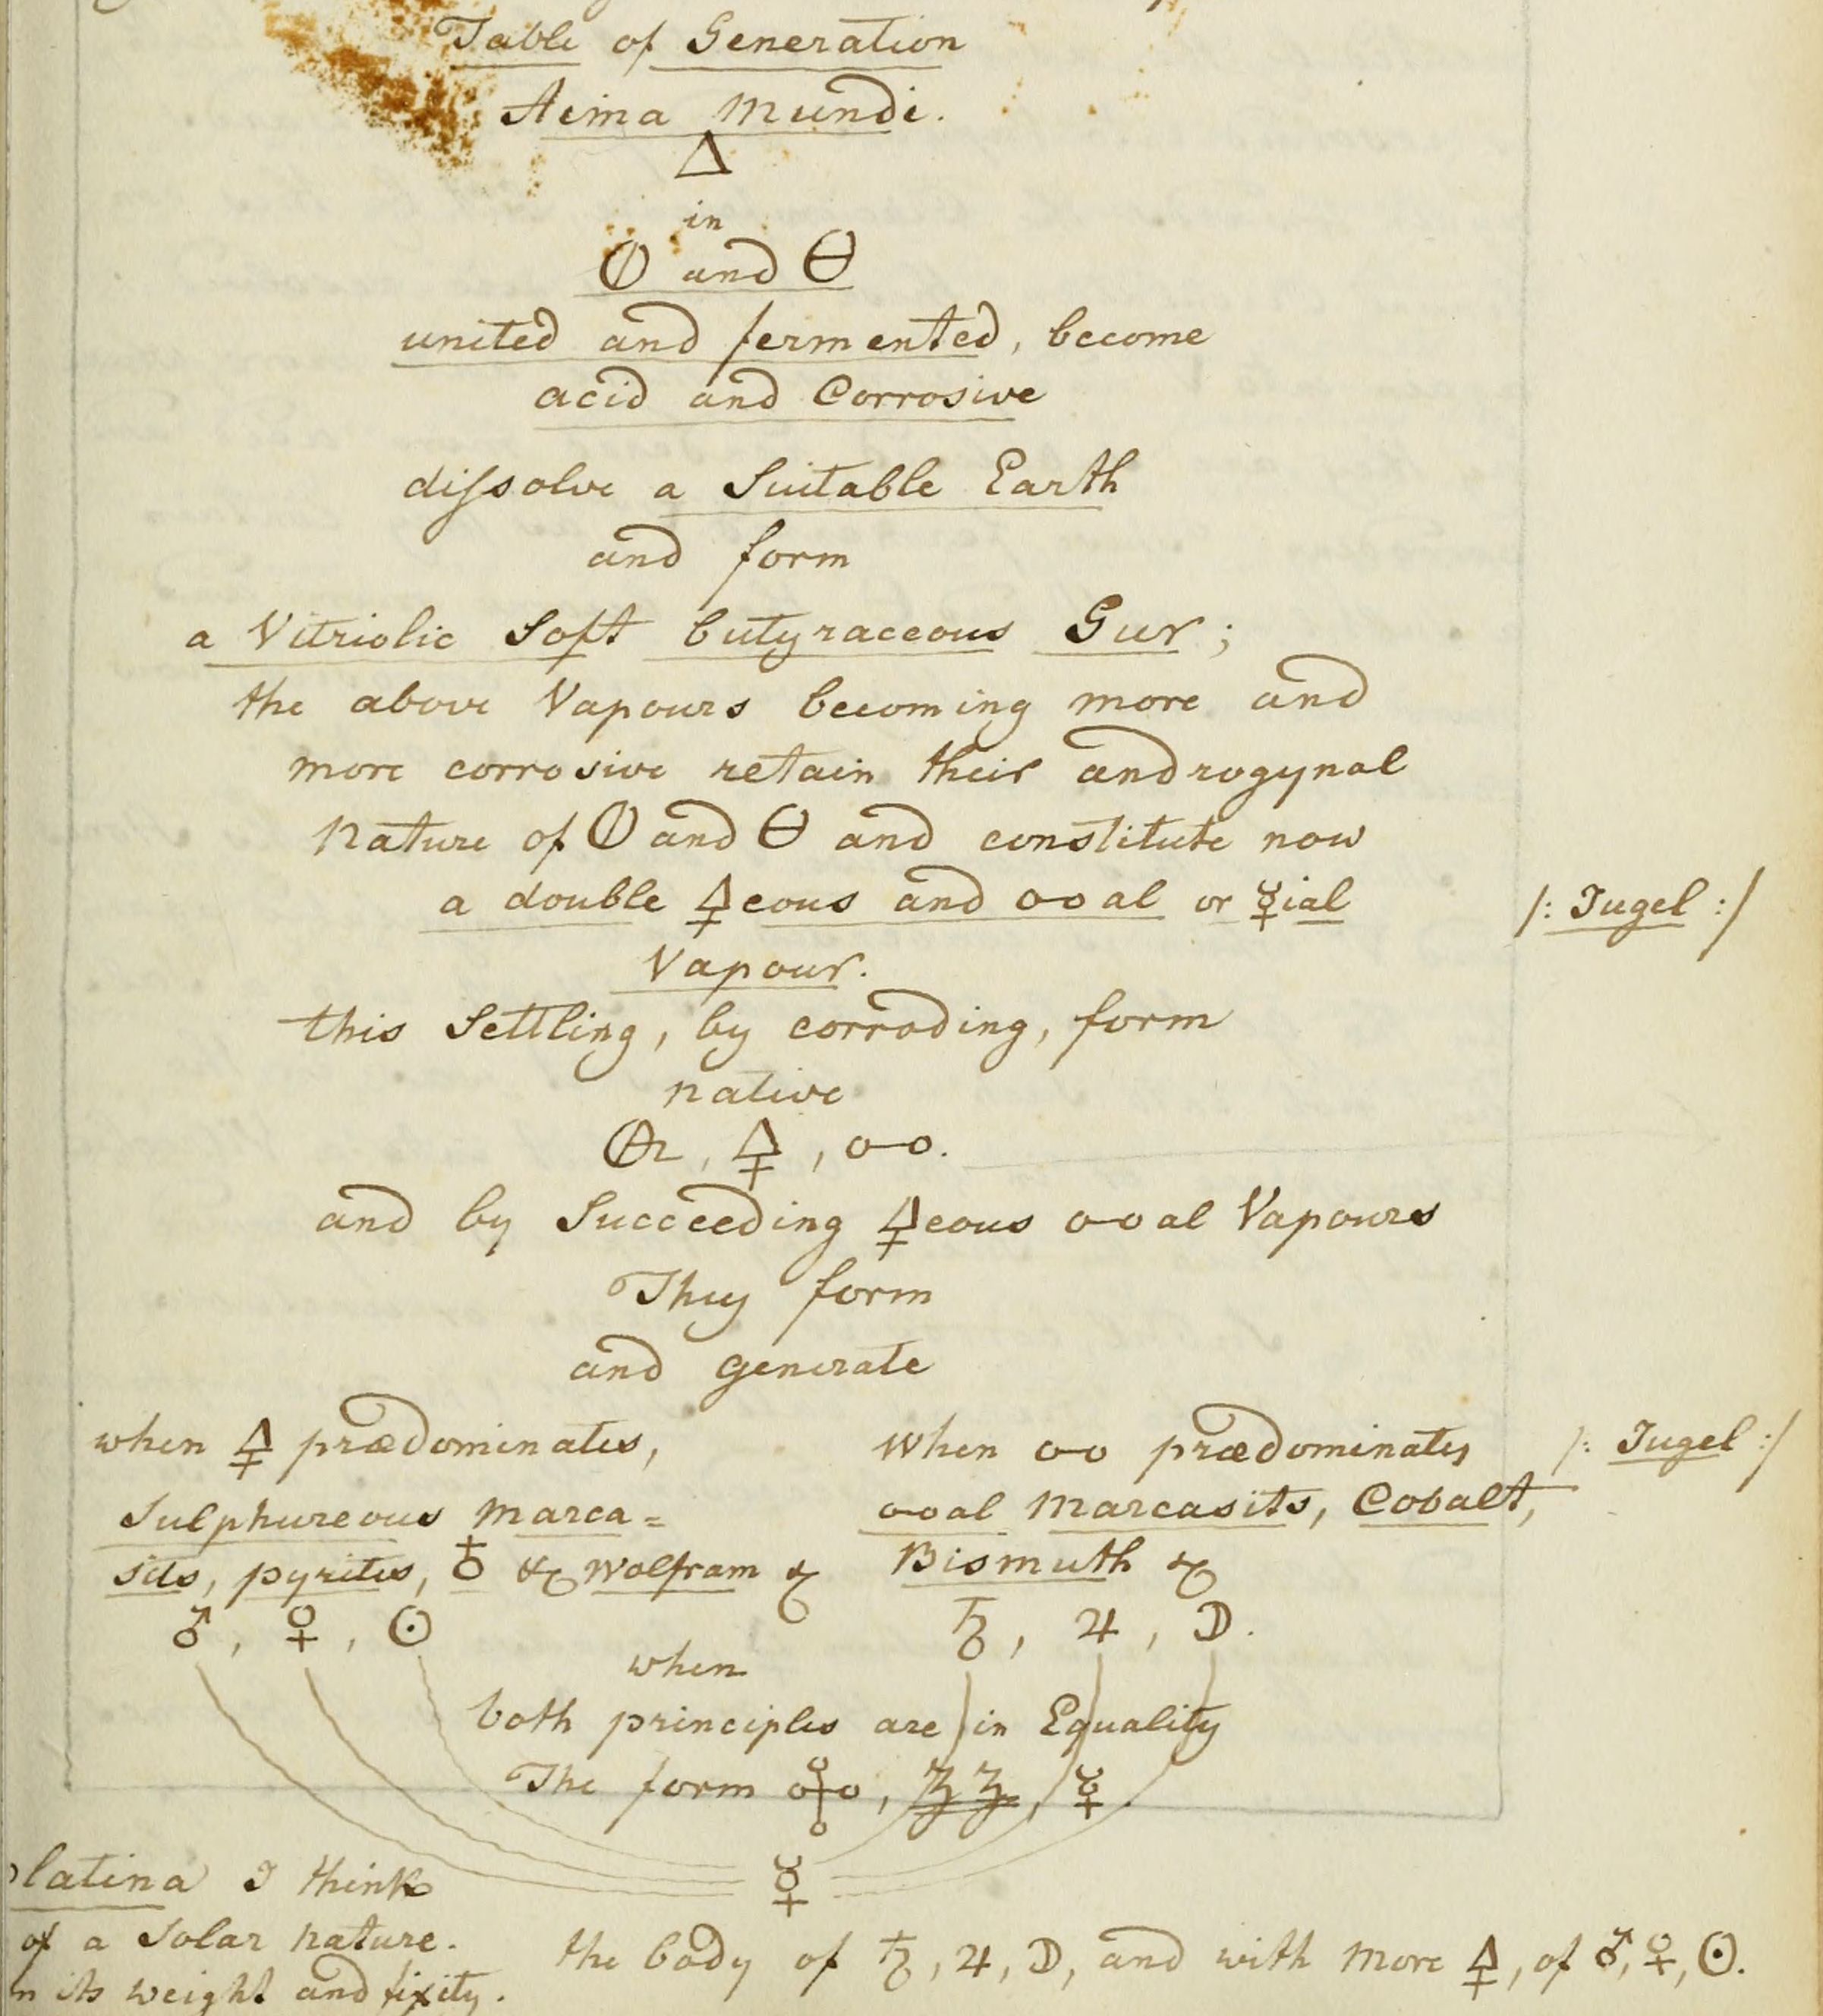 Table of Generation
Aeima Mundi.
△
in
⦶ and ⊖
united and fermented, become
acid and Corrosive
dissolve a Suitable Earth
and form
a Vitriolic Soft butyraceous Gur;
the above Vapours becoming more and
more corrosive retain their androgynal
Nature of ⦶ and ⊖ and constitute now
a double 🜍eous and o-o al or ☿ial
/: Jugel :/
Vapour.
this Settling, by corroding, form
native
🜍, o-o.
and by Succeeding 🜍eous o-o al Vapours
They form
and generate
when 🜍 prædominates,
Sulphureous Marca=
sits, pyrites, ♁ &c Wolfram &c
♂, ♀, ☉
When o-o prædominates
o-o al Marcasits, Cobalt,
Bismuth &c
♄, ♃, ☽.
/: Jugel :/
when
both principles are in Equality
The form , ☿.
☿
platina I think
of a Solar nature.
in its weight and fixity.
the body of ♄, ♃, ☽, and with more 🜍, of ♂, ♀, ☉.